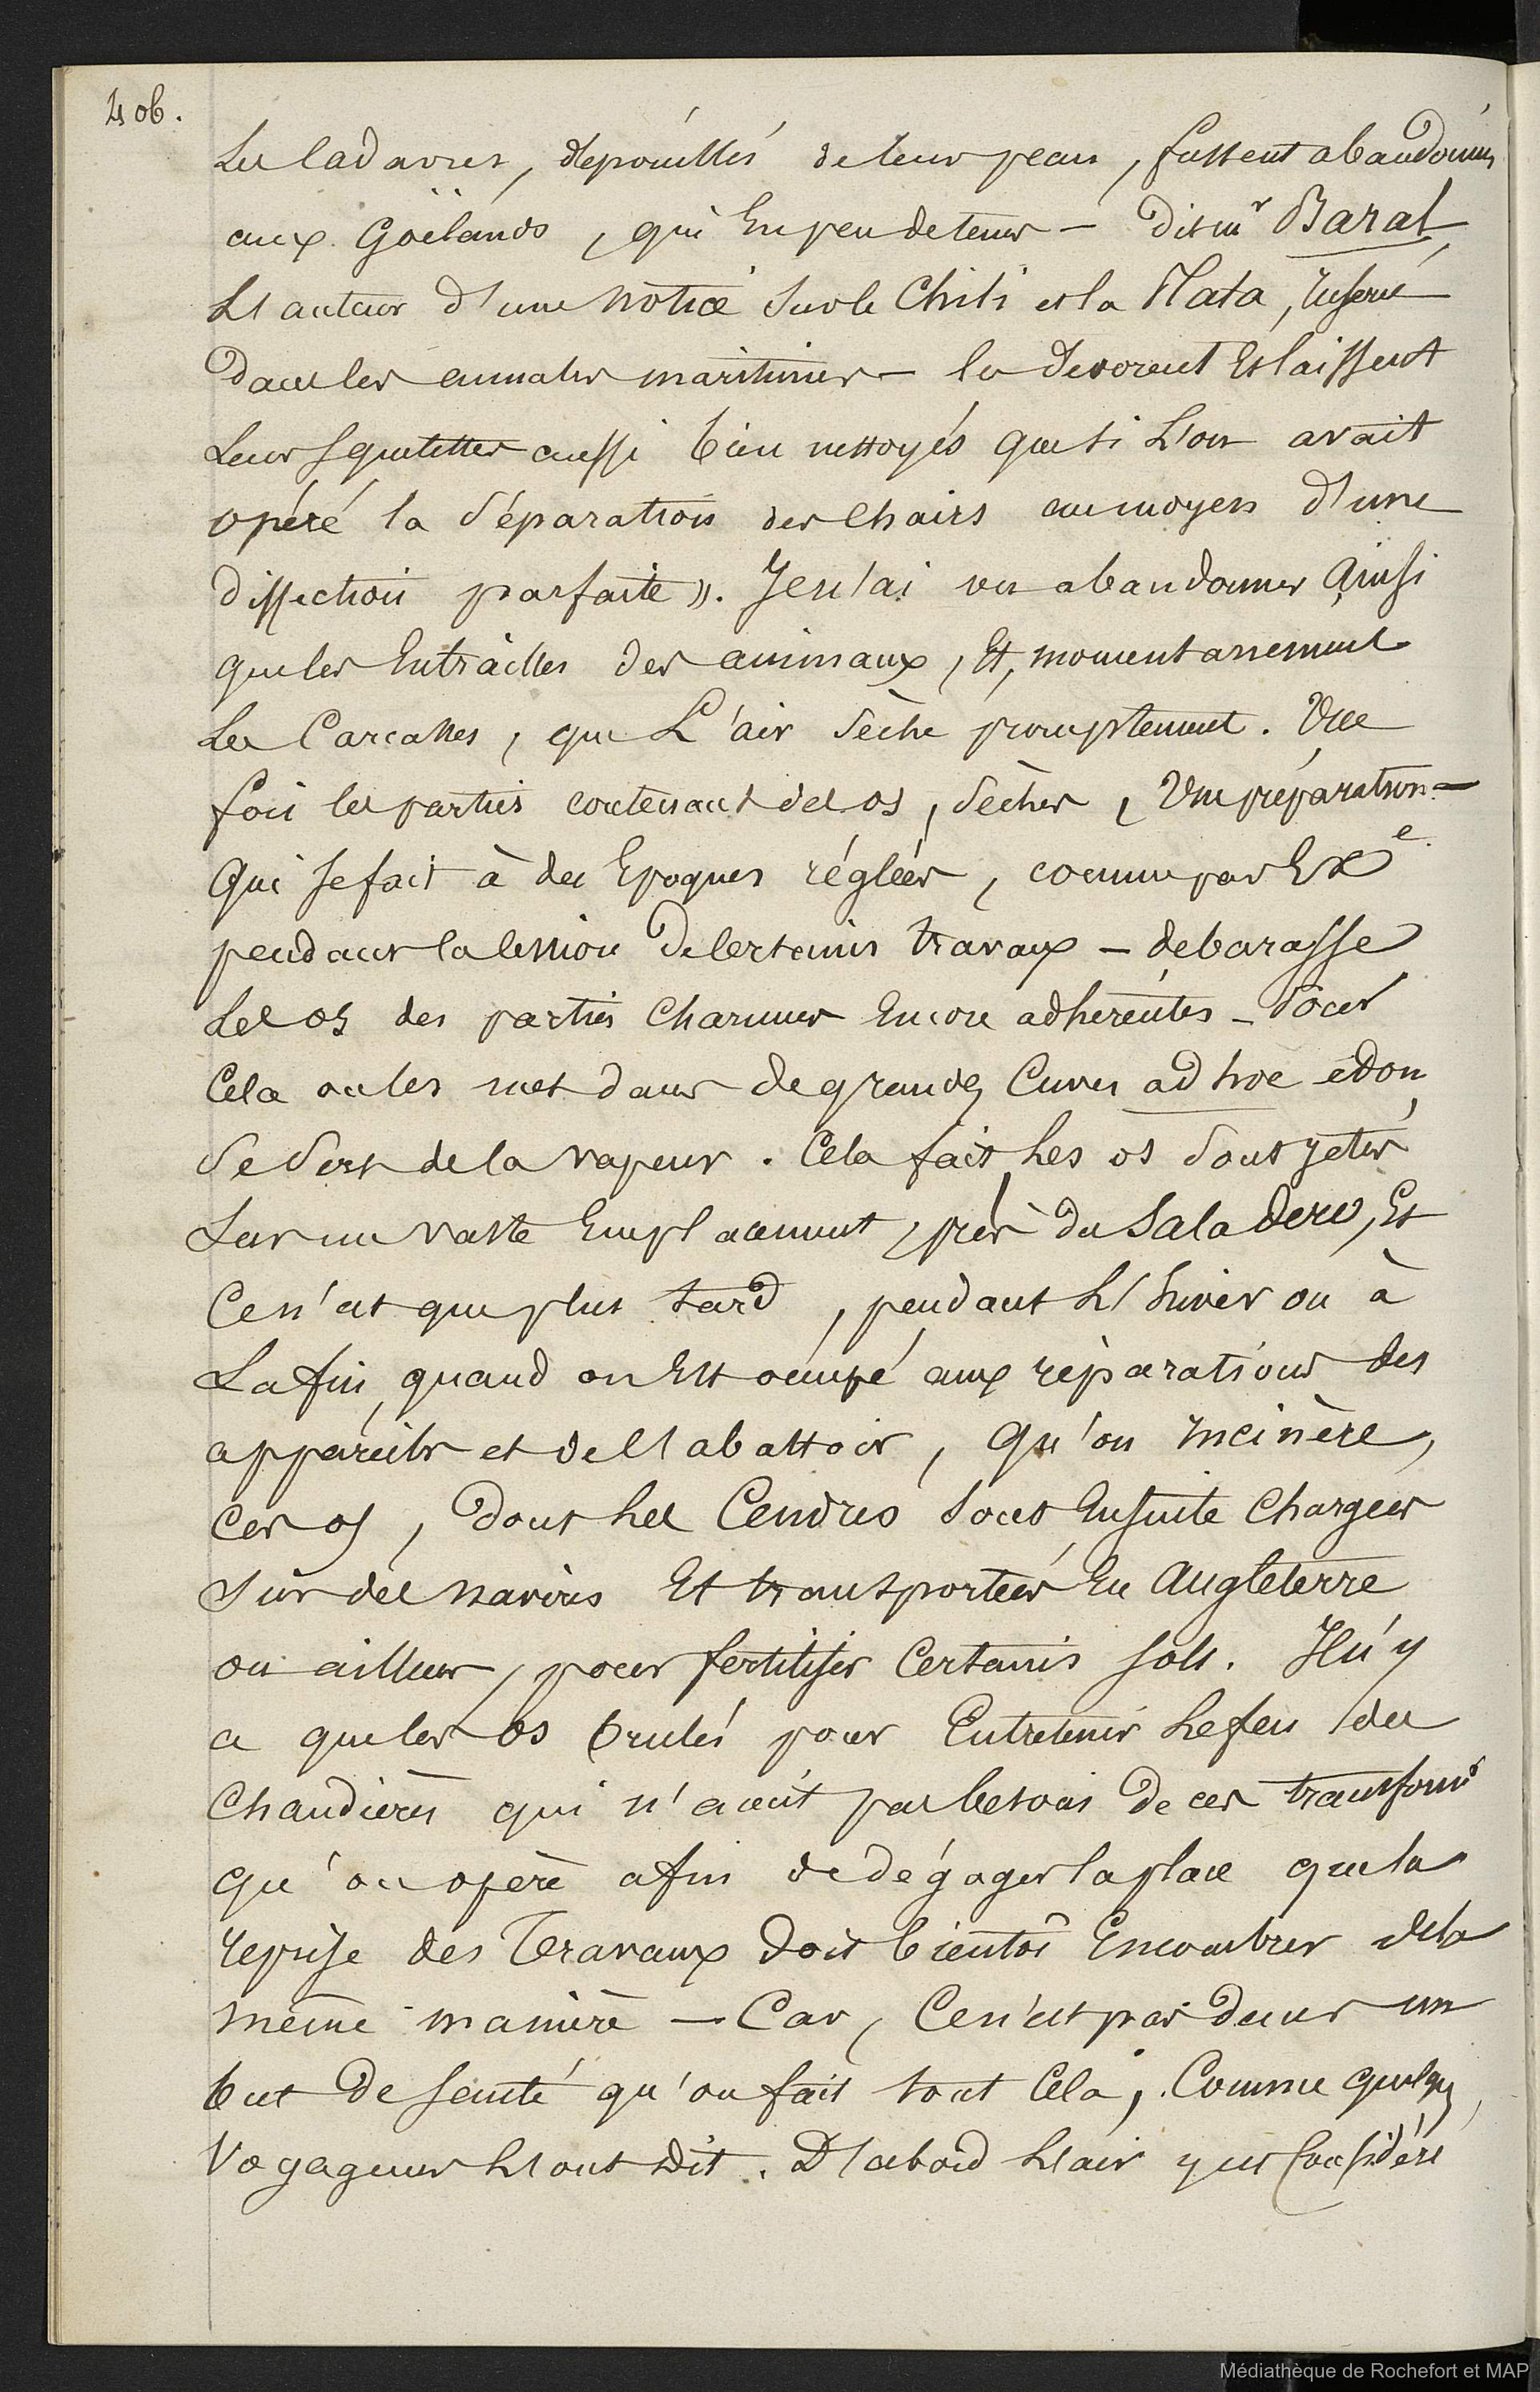 406.
Les Cadavres, depouillés de leur peau, fussent abandonnés
aux Goëlands, qui En peu de tems — dit mr Baral
L'auteur d'une notice sur le Chili et la Plata, Inserée
dans les annales maritimes — les devorent Et laissent
Leur squelettes aussi bien nettoyés que si L'on avait
opéré la séparation des Chairs au moyen d'une
dissection parfaite ». Je n'ai vu abandonner Ainsi
que les Entrailles des animaux, Et, momentanement
Les Carcasses, que L'air sèche promptement. Une
fois les parties contenant des os, sèches, Une préparation —
Qui se fait à des Epoques réglées, comme par Exe
pendant la Cession de Certains travaux — debarasse
Les os des parties Charnues Encore adherentes — Pour
Cela on les met dans de grandes Cuves ad hoc et on
Se Sert de la vapeur. Cela fait, Les os sont jetés
Sur un vaste Emplacement, près du Saladero, Et
Ce n'est que plus tard, pendant L'hiver ou à
La fin, quand on Est ocupé aux réparations des
appareils et de l'abattoir, Qu'on Incinère,
Ces os, dont Les Cendres sont Ensuite Chargées
Sur des navires Et transportées En Angleterre
ou ailleurs, pour fertiliser Certains sols. Il n'y
a que les os brulés pour Entretenir Le feu des
Chaudières qui n'aient pas besoin de ces transforms
qu'on opère afin de dégager la place que la
reprise des Travaux doit bientôt Encombrer de la
même manière — Car, Ce n'est pas dans un
but de santé qu'on fait tout Cela, Comme quelques
Voyageurs L'ont dit. D'abord L'air y est Considéré
Médiathèque de Rochefort et MAP